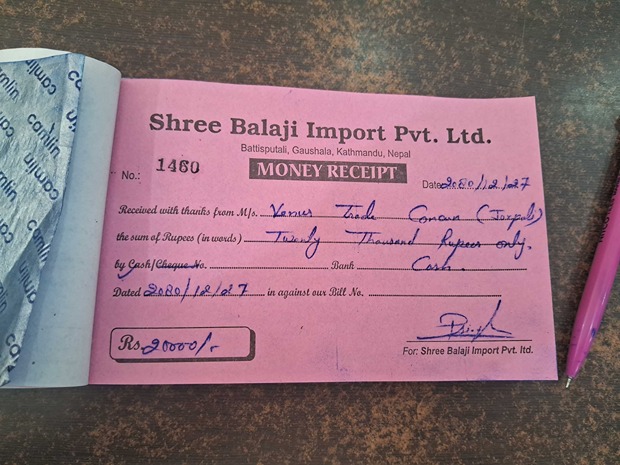 camlin
camlin
camlin
camlin
camlin
camlin
Shree Balaji Import Pvt. Ltd.
Battisputali, Gaushala, Kathmandu, Nepal
No.: 1460 MONEY RECEIPT Date 2080/12/27
Received with thanks from M/s. Venus Trade
the sum of Rupees (in words) Twenty Thousand Rupees only.
by Cash/Cheque No. Bank Cash.
Dated 2080/12/27 in against our Bill No.
Rs. 20000/-
For: Shree Balaji Import Pvt. ltd.